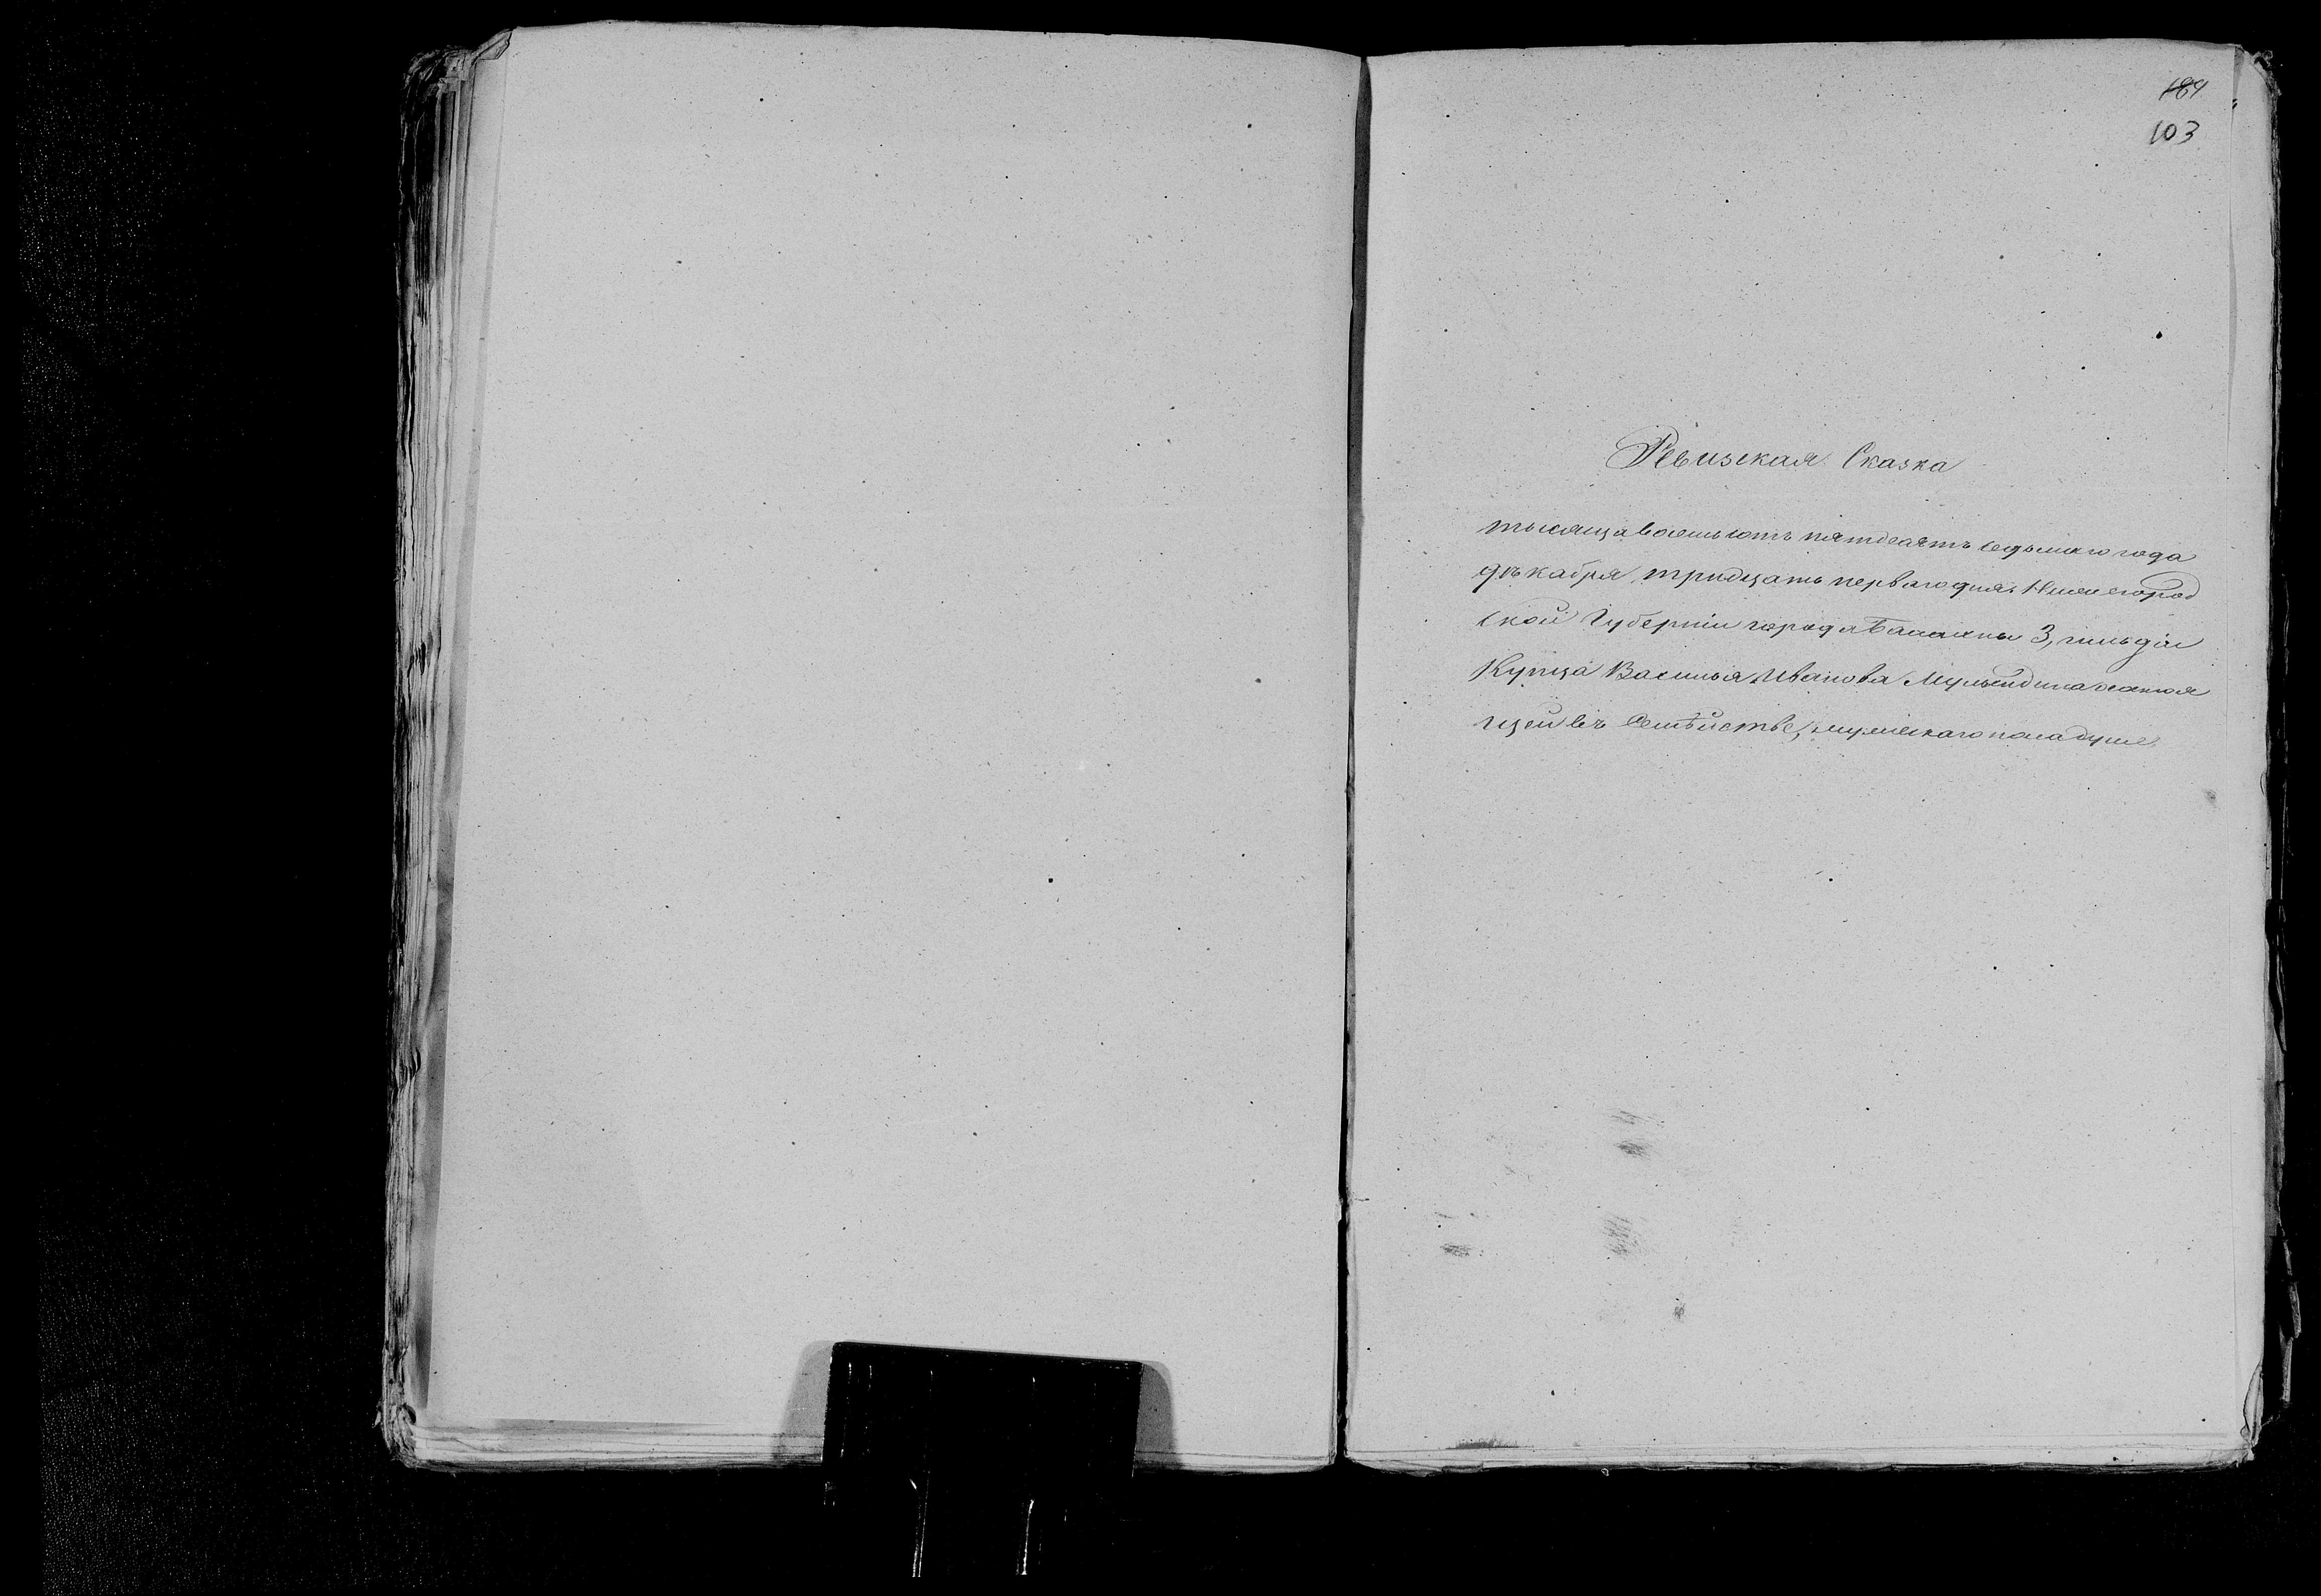 184
103
Ревизская Сказка
тысяща восемьсотъ пятдеятъ седьмаго года
дѣкабря тридцать перваго дня Нижегород
ской Губерніи города Балахны 3, гильдіи
Купца Василья Иванова
щей въ Семѣйстве, мужескаго пола душе